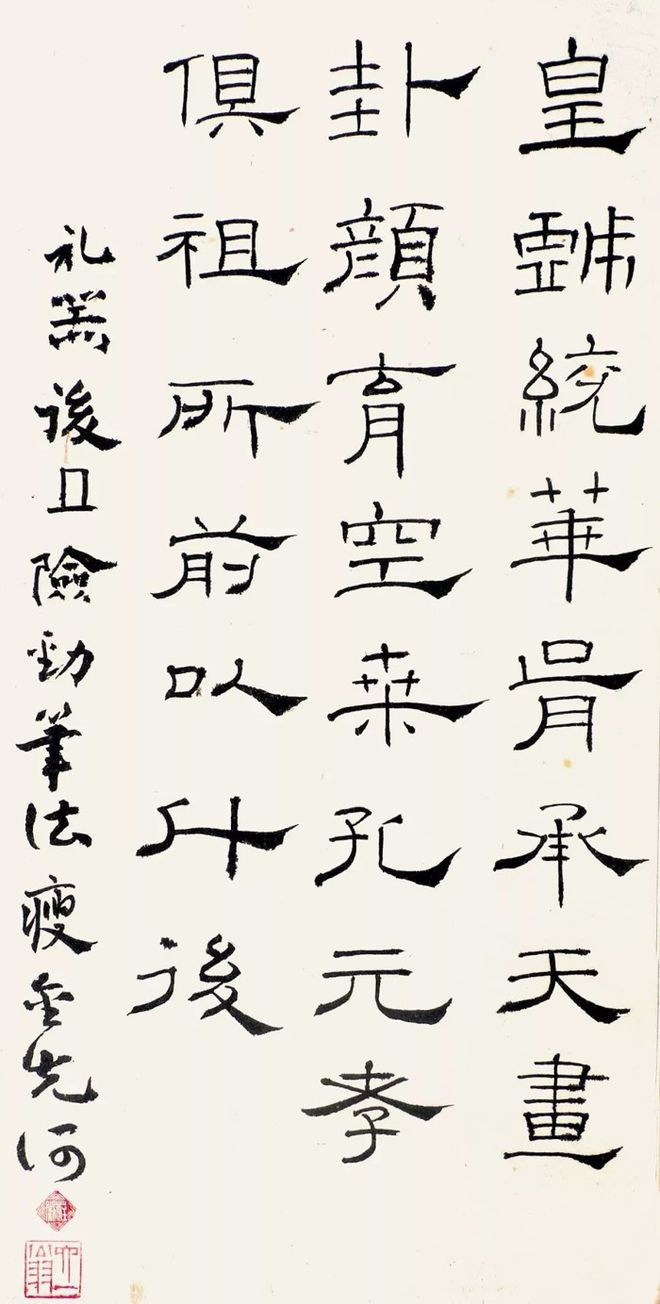 皇戲統華胥承天畫
卦顏育空桒孔元孝
俱祖所前以什後
礼器峻且險勁筆法瘦金先河